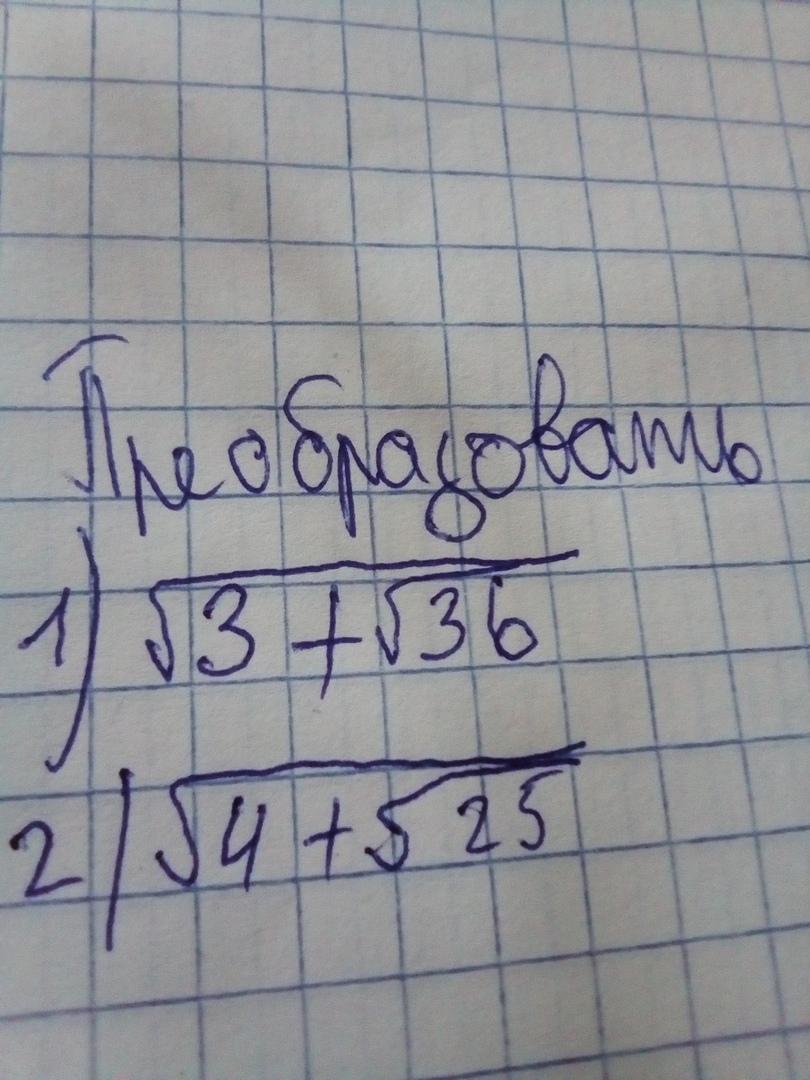 Преобразовать
1) √(3 + √36)
2) √(4 + √25)